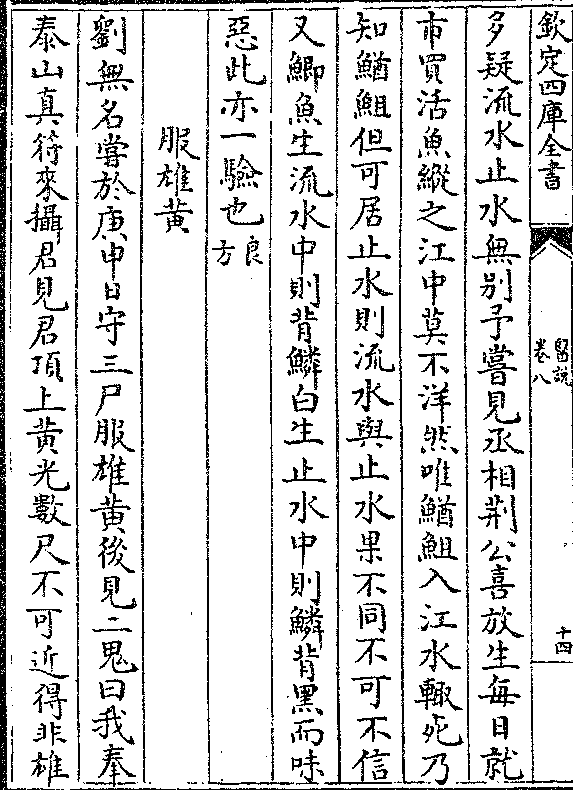 欽定四庫全書
醫說
卷八
十四
多疑流水止水無别予嘗見丞相荆公喜放生每日就
市買活魚縱之江中莫不洋然唯鰌䱇入江水輙死乃
知鰌䱇但可居止水則流水與止水果不同不可不信
又鯽魚生流水中則背鱗白生止水中則鱗背黑而味
惡此亦一驗也良方
服雄黄
劉無名嘗於庚申日守三尸服雄黄後見二鬼曰我奉
泰山真符來攝君見君項上黄光數尺不可近得非雄